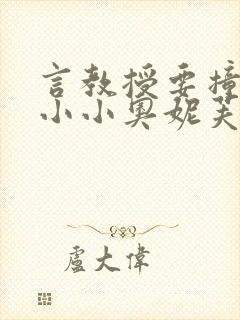 言教授要撞
小小奥妮芙
盧大偉